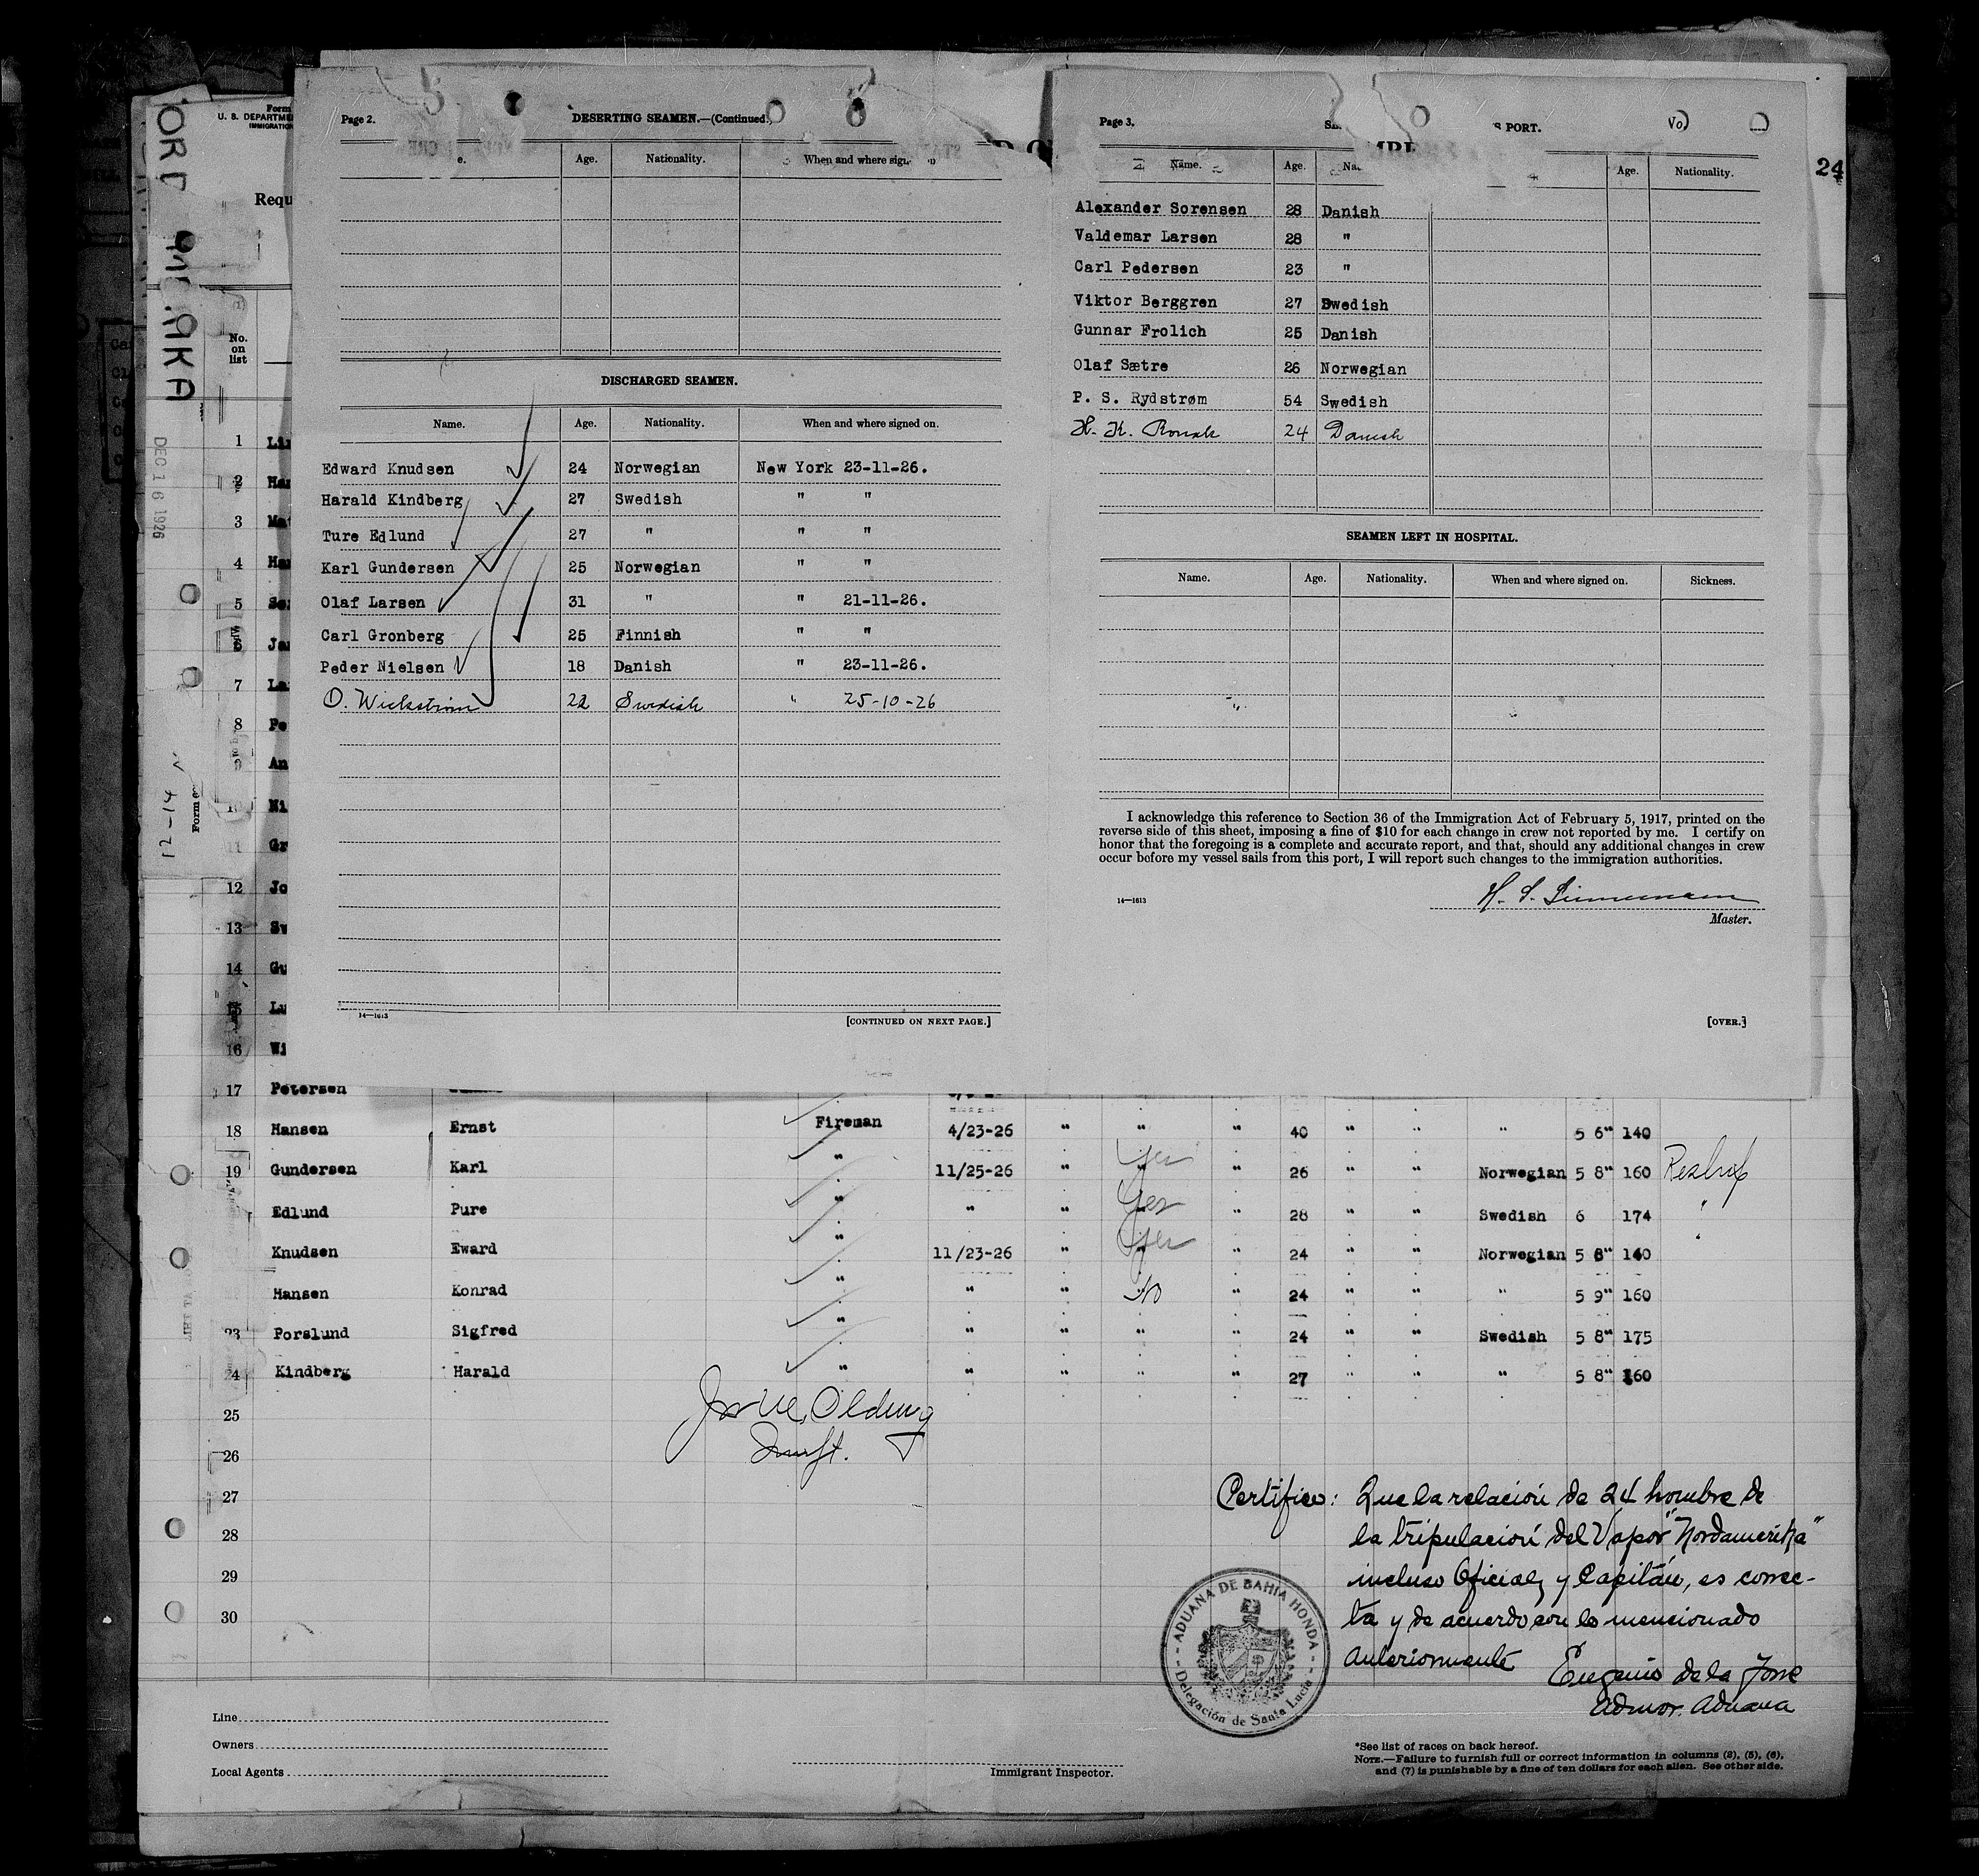 Page 2.
DESERTING SEAMEN.—(Continued.)
Age. Nationality. When and where
DISCHARGED SEAMEN.
Name. Age. Nationality. When and where signed on.
Edward Knudsen 24 Norwegian New York 23-11-26.
Harald Kindberg 27 Swedish " "
Ture Edlund 27 " " "
Karl Gundersen 25 Norwegian " "
Olaf Larsen 31 " " 21-11-26.
Carl Gronberg 25 Finnish " "
Peder Nielsen 18 Danish " 23-11-26.
O. Wickstrom 22 Swedish " 25-10-26
14—1613
[CONTINUED ON NEXT PAGE.]
Page 3.
PORT.
Name. Age. Age. Nationality.
Alexander Sorensen 28 Danish
Valdemar Larsen 28 "
Carl Pedersen 23 "
Viktor Berggren 27 Swedish
Gunnar Frolich 25 Danish
Olaf Sætre 26 Norwegian
P. S. Rydstrøm 54 Swedish
H. K. 24 Danish
SEAMEN LEFT IN HOSPITAL.
Name. Age. Nationality. When and where signed on. Sickness.
I acknowledge this reference to Section 36 of the Immigration Act of February 5, 1917, printed on the
reverse side of this sheet, imposing a fine of $10 for each change in crew not reported by me. I certify on
honor that the foregoing is a complete and accurate report, and that, should any additional changes in crew
occur before my vessel sails from this port, I will report such changes to the immigration authorities.
14—1613
Master.
[OVER.]
24
DEC 16 1926
12-14
Form
U. S.
No.
on
list
1
2
3
4
5
6
7
8
9
10
11
12
13
14
15
16
17 Petersen
18 Hansen Ernst Fireman 4/23-26 " " " 40 " " " 5 6" 140
19 Gundersen Karl " 11/25-26 " Yes " 26 " " Norwegian 5 8" 160
Edlund Pure " " " Yes " 28 " " Swedish 6 174 "
Knudsen Eward " 11/23-26 " Yes " 24 " " Norwegian 5 8" 140 "
Hansen Konrad " " " No " 24 " " " 5 9" 160
23 Forslund Sigfred " " " " " 24 " " Swedish 5 8" 175
24 Kindberg Harald " " " " " 27 " " " 5 8" 160
25
26
27
28
29
30
Certifico: Que la relación de 24 hombre de
la tripulación del Vapor "Nordamerika"
incluso Oficiales y Capitán, es correc-
ta y de acuerdo con lo mencionado
anteriormente
Eugenio de la Torre
Admor. Aduana
ADUANA DE BAHIA HONDA
Delegación de Santa Lucia
Line
Owners
Local Agents
Immigrant Inspector.
*See list of races on back hereof.
NOTE.—Failure to furnish full or correct information in columns (2), (5), (6),
and (7) is punishable by a fine of ten dollars for each alien. See other side.